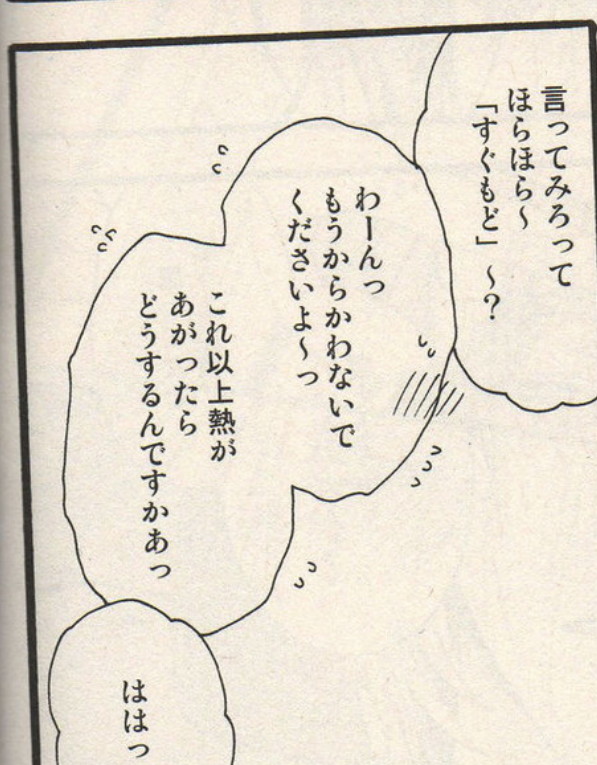 言ってみろって
ほらほら〜
「すぐもど」〜?
わーんっ
もうからかわないで
くださいよ〜っ
これ以上熱が
あがったら
どうするんですかあっ
ははっ